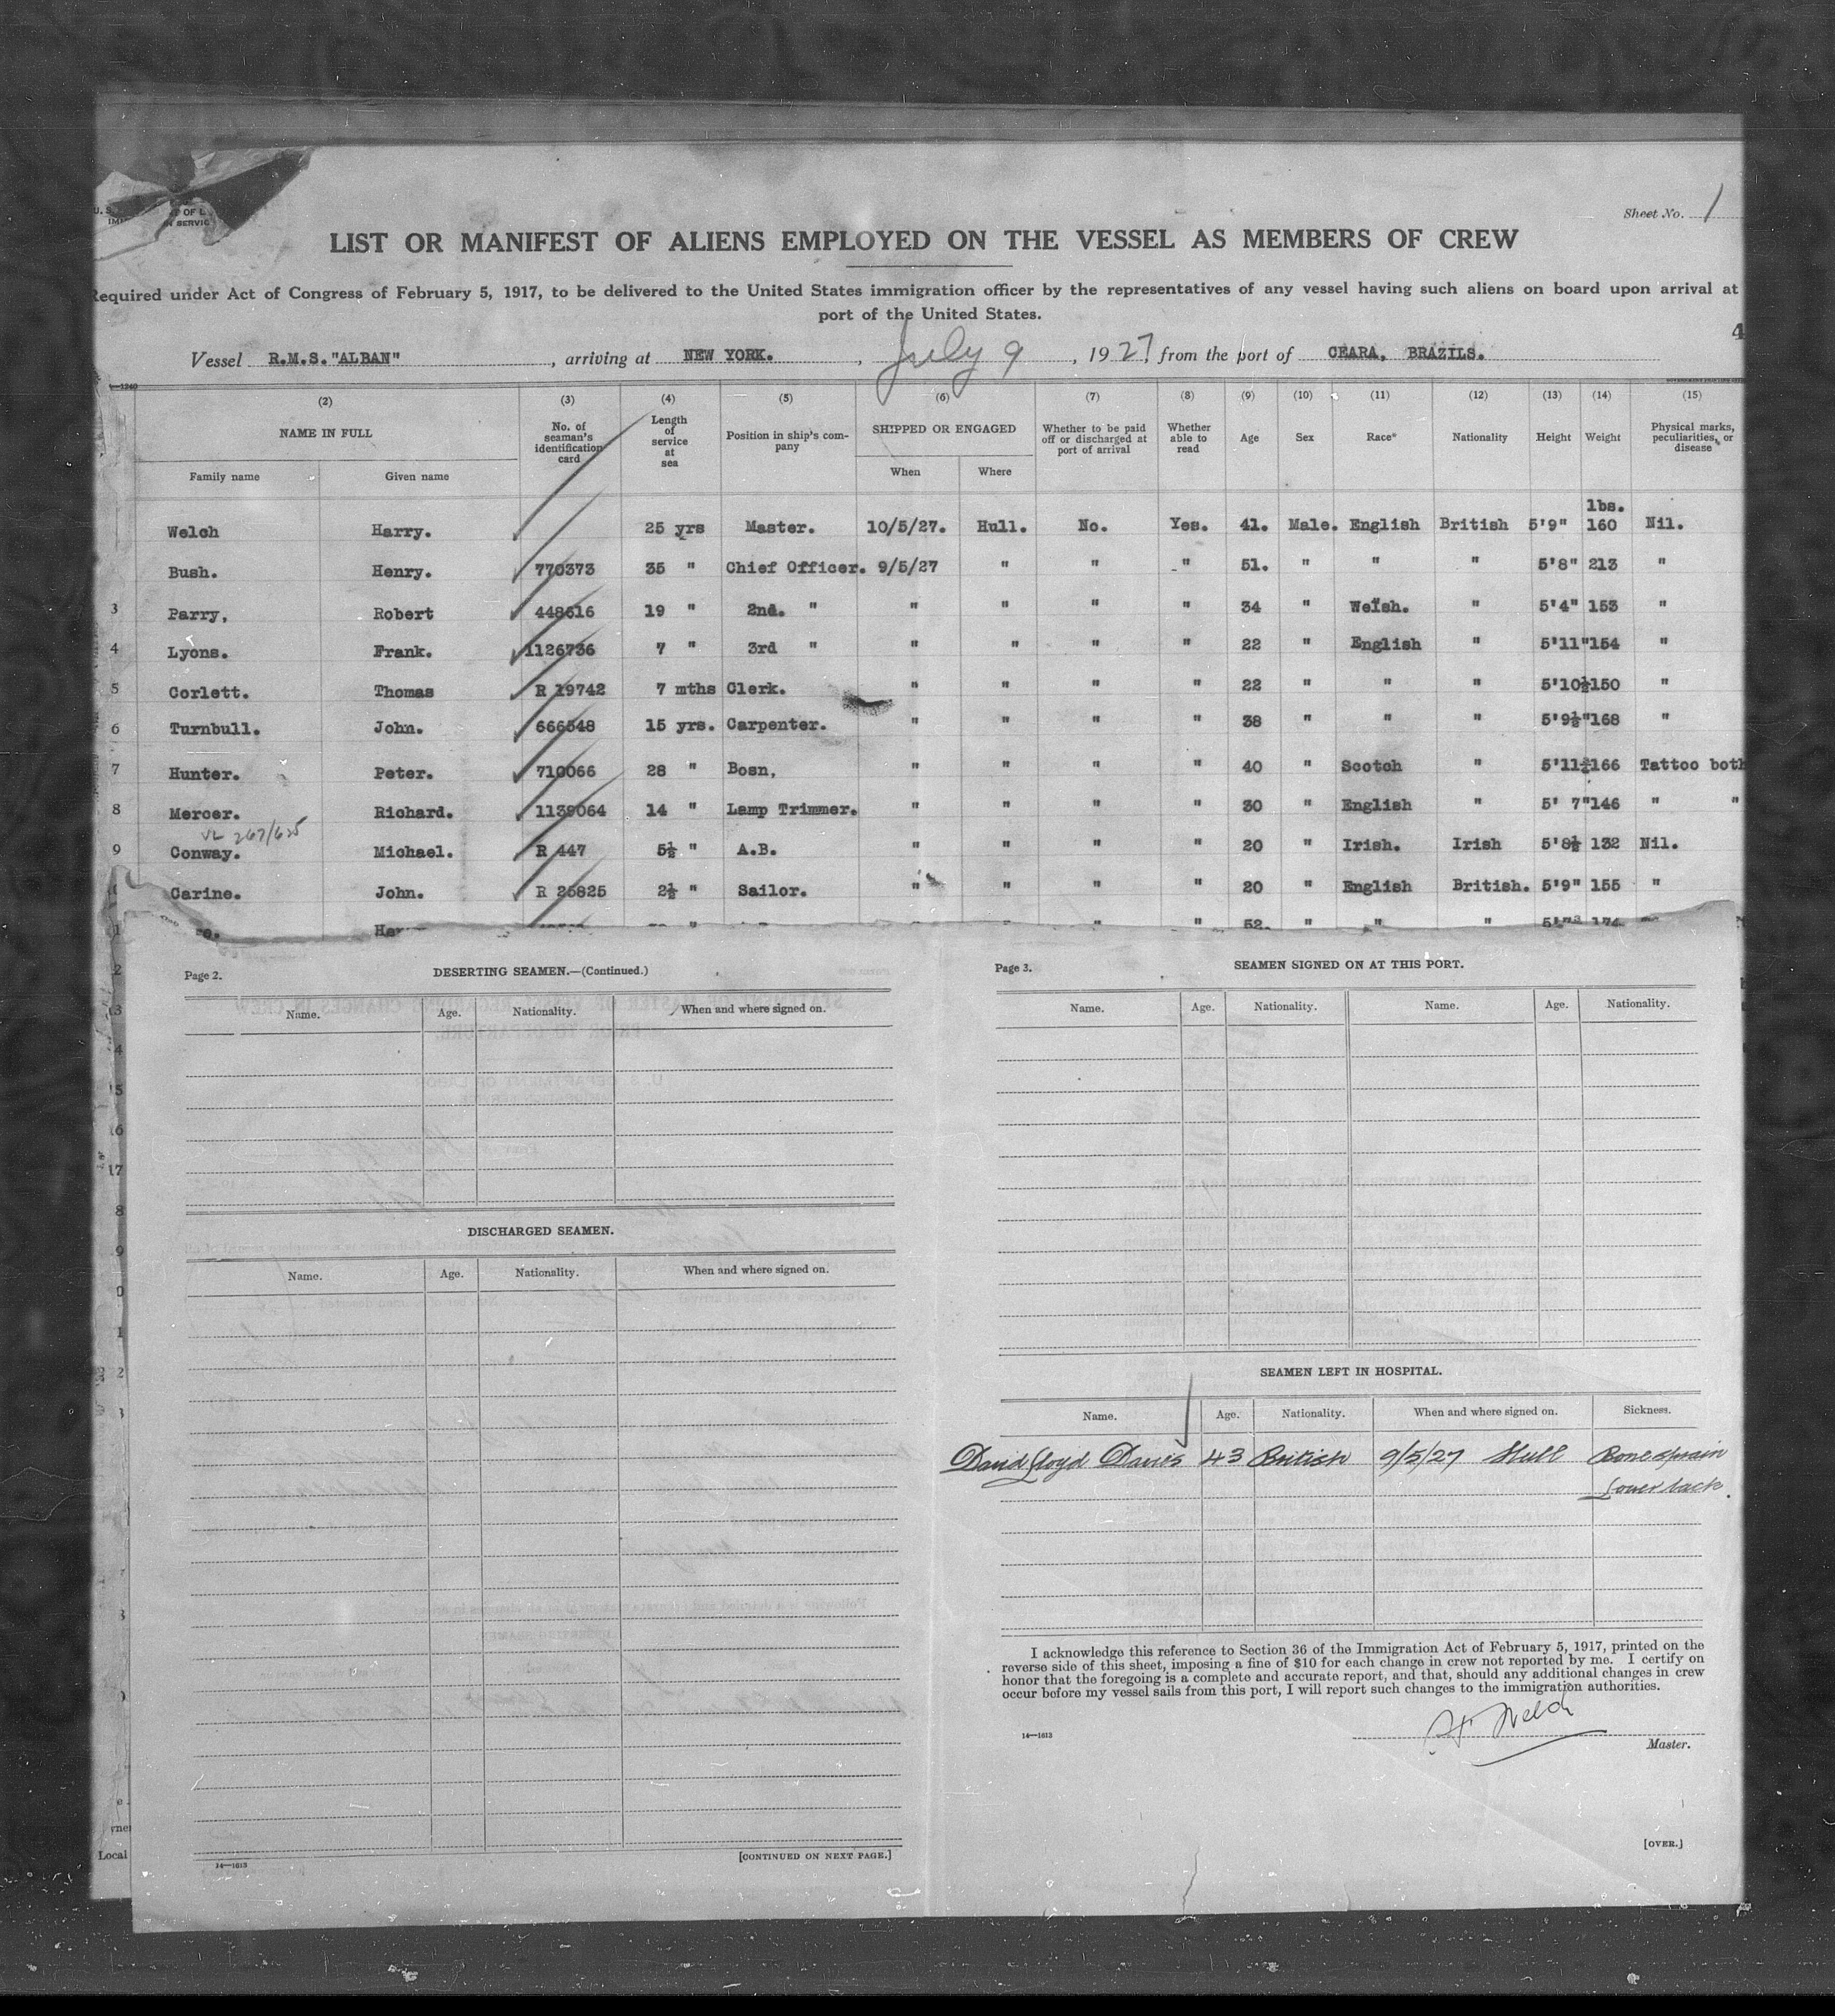 Sheet No. 1
LIST OR MANIFEST OF ALIENS EMPLOYED ON THE VESSEL AS MEMBERS OF CREW
Required under Act of Congress of February 5, 1917, to be delivered to the United States immigration officer by the representatives of any vessel having such aliens on board upon arrival at
port of the United States.
4
Vessel R.M.S."ALBAN", arriving at NEW YORK., July 9, 1927, from the port of CEARA, BRAZILS.
(2) (3) (4) (5) (6) (7) (8) (9) (10) (11) (12) (13) (14) (15)
NAME IN FULL No. of seaman's identification card Length of service at sea Position in ship's company SHIPPED OR ENGAGED Whether to be paid off or discharged at port of arrival Whether able to read Age Sex Race* Nationality Height Weight Physical marks, peculiarities, or disease
Family name Given name When Where
lbs.
Welch Harry. 25 yrs Master. 10/5/27. Hull. No. Yes. 41. Male. English British 5'9" 160 Nil.
Bush. Henry. 770373 35 " Chief Officer. 9/5/27 " " " 51. " " " 5'8" 213 "
3 Parry, Robert 448616 19 " 2nd. " " " " " 34 " Welsh. " 5'4" 153 "
4 Lyons. Frank. 1126736 7 " 3rd " " " " " 22 " English " 5'11" 154 "
5 Corlett. Thomas R 19742 7 mths Clerk. " " " " 22 " " " 5'10½ 150 "
6 Turnbull. John. 666548 15 yrs. Carpenter. " " " " 38 " " " 5'9½" 168 "
7 Hunter. Peter. 710066 28 " Bosn, " " " " 40 " Scotch " 5'11½ 166 Tattoo both
8 Mercer. Richard. 1139064 14 " Lamp Trimmer. " " " " 30 " English " 5' 7" 146 " "
VL 267/625
9 Conway. Michael. R 447 5½ " A.B. " " " " 20 " Irish. Irish 5'8½ 132 Nil.
Carine. John. R 25825 2½ " Sailor. " " " " 20 " English British. 5'9" 155 "
52. " " "
Page 2. DESERTING SEAMEN.—(Continued.)
Name. Age. Nationality. When and where signed on.
DISCHARGED SEAMEN.
Name. Age. Nationality. When and where signed on.
14—1613 [CONTINUED ON NEXT PAGE.]
Page 3. SEAMEN SIGNED ON AT THIS PORT.
Name. Age. Nationality. Name. Age. Nationality.
SEAMEN LEFT IN HOSPITAL.
Name. Age. Nationality. When and where signed on. Sickness.
David Lloyd Davies 43 British 9/5/27 Hull Bone Sprain
Lower back.
I acknowledge this reference to Section 36 of the Immigration Act of February 5, 1917, printed on the
reverse side of this sheet, imposing a fine of $10 for each change in crew not reported by me. I certify on
honor that the foregoing is a complete and accurate report, and that, should any additional changes in crew
occur before my vessel sails from this port, I will report such changes to the immigration authorities.
H. Welch
14—1613 Master.
[OVER.]
Local